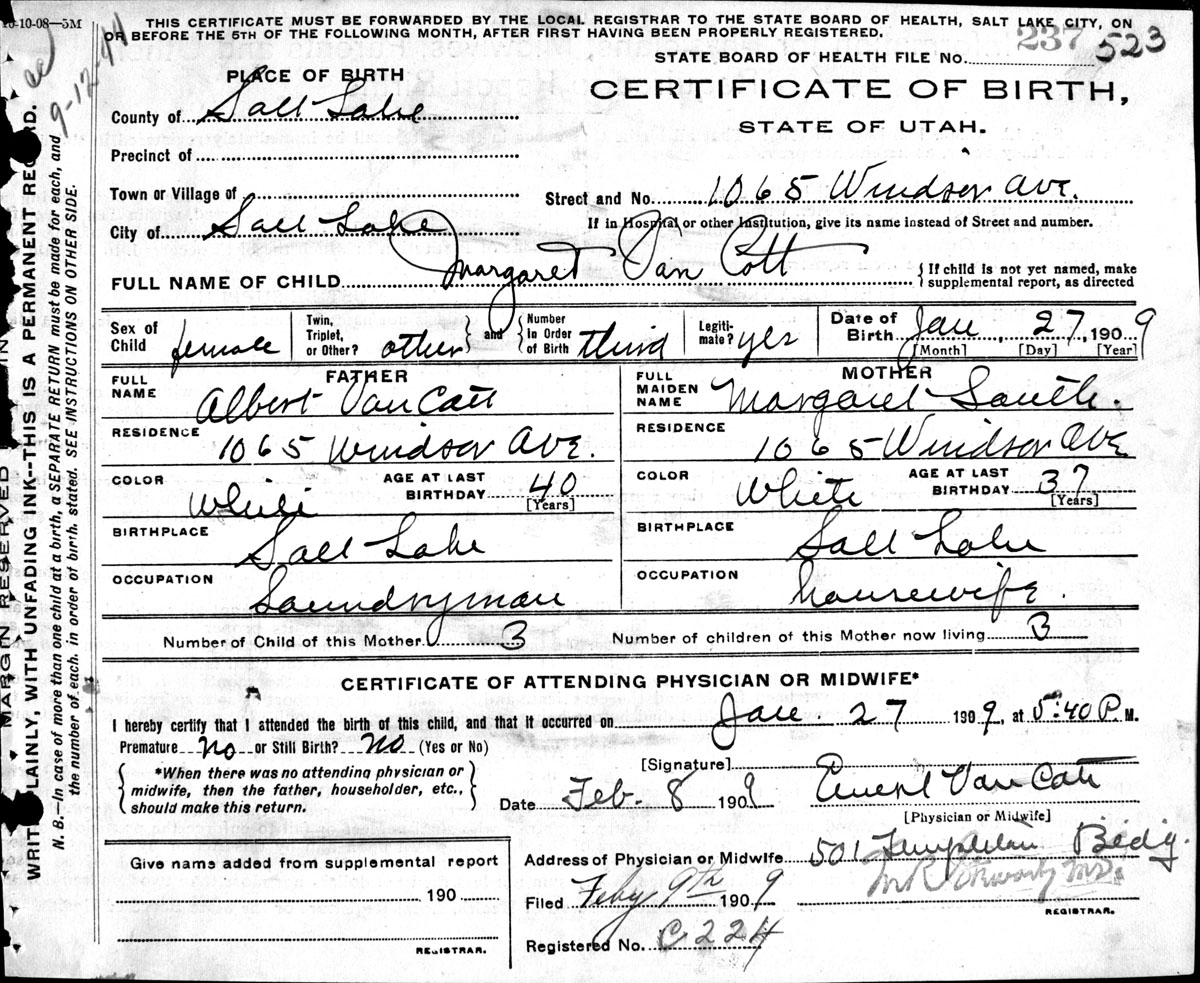 10-10-08—5M
THIS CERTIFICATE MUST BE FORWARDED BY THE LOCAL REGISTRAR TO THE STATE BOARD OF HEALTH, SALT LAKE CITY, ON
OR BEFORE THE 5TH OF THE FOLLOWING MONTH, AFTER FIRST HAVING BEEN PROPERLY REGISTERED.
237 523
STATE BOARD OF HEALTH FILE NO.
CERTIFICATE OF BIRTH,
STATE OF UTAH.
PLACE OF BIRTH
County of Salt Lake
Precinct of
Town or Village of
City of Salt Lake
Street and No. 1065 Windsor Ave.
If in Hospital or other Institution, give its name instead of Street and number.
FULL NAME OF CHILD Margaret Van Cott
{ If child is not yet named, make
supplemental report, as directed
Sex of Child female
Twin, Triplet, or Other? other and Number in Order of Birth third
Legitimate? yes
Date of Birth Jan. 27, 1909
[Month] [Day] [Year]
FATHER
FULL NAME Albert Van Cott
RESIDENCE 1065 Windsor Ave.
COLOR White
AGE AT LAST BIRTHDAY 40
[Years]
BIRTHPLACE Salt Lake
OCCUPATION Laundryman
MOTHER
FULL MAIDEN NAME Margaret
RESIDENCE 1065 Windsor Ave
COLOR White
AGE AT LAST BIRTHDAY 37
[Years]
BIRTHPLACE Salt Lake
OCCUPATION housewife.
Number of Child of this Mother 3
Number of children of this Mother now living 3
CERTIFICATE OF ATTENDING PHYSICIAN OR MIDWIFE*
I hereby certify that I attended the birth of this child, and that it occurred on Jan. 27 1909, at 5:40 P. M.
Premature No or Still Birth? No (Yes or No)
{ *When there was no attending physician or
midwife, then the father, householder, etc.,
should make this return. }
[Signature] Van Cott
Date Feb. 8 1909
[Physician or Midwife]
Address of Physician or Midwife 501 Templeton Bldg.
Give name added from supplemental report
190
REGISTRAR.
Filed Feby 9th 1909
M R Schwartz M.D.
REGISTRAR.
Registered No. C224
MARGIN RESERVED
PLAINLY, WITH UNFADING INK--THIS IS A PERMANENT RECORD.
N. B.—In case of more than one child at a birth, a SEPARATE RETURN must be made for each, and
the number of each, in order of birth, stated. SEE INSTRUCTIONS ON OTHER SIDE.
9-12-41